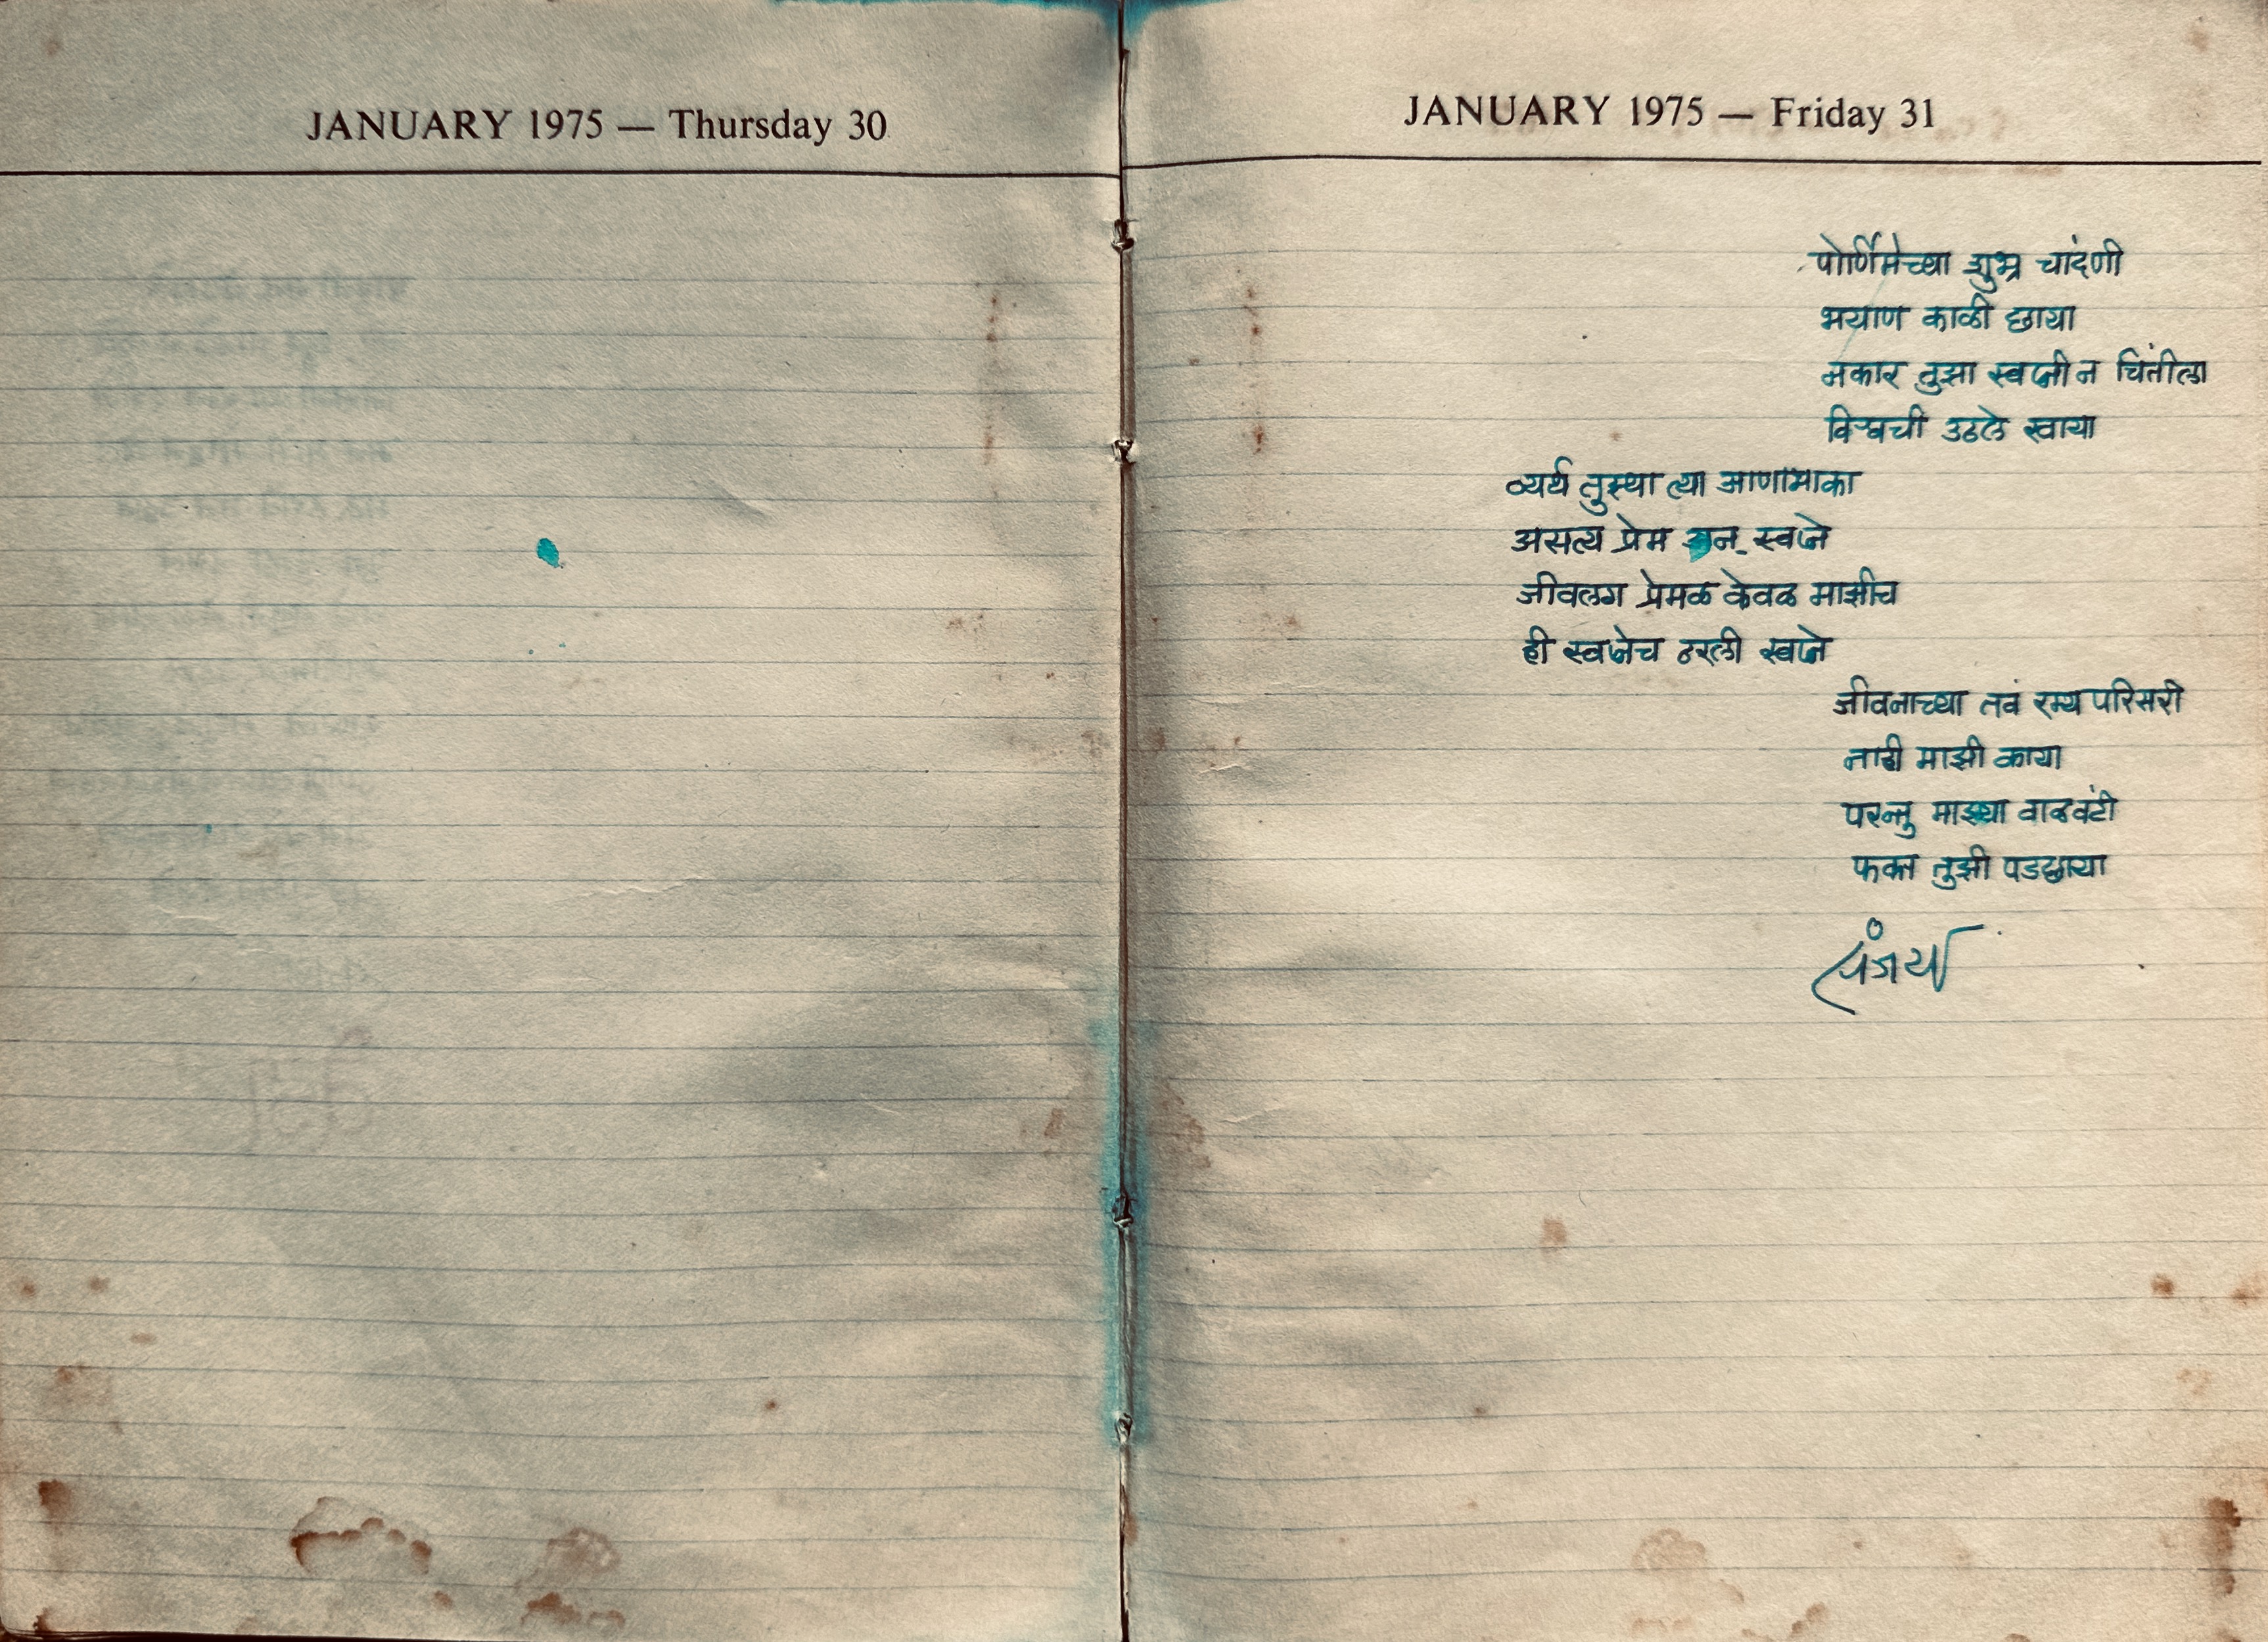 JANUARY 1975 — Thursday 30
JANUARY 1975 — Friday 31
पोर्णिमेच्या शुभ्र चांदणी
भयाण काळी छाया
नकार तुझा स्वप्नी न चिंतीला
विश्वची उठले खाया
व्यर्थ तुझ्या त्या आणाभाका
असत्य प्रेम अन् स्वप्ने
जीवलग प्रेमळ केवळ माझीच
ही स्वप्नेच ठरली स्वप्ने
जीवनाच्या तवं रम्य परिसरी
नाही माझी काया
परन्तु माझ्या वाळवंटी
फक्त तुझी पडछाया
संजय